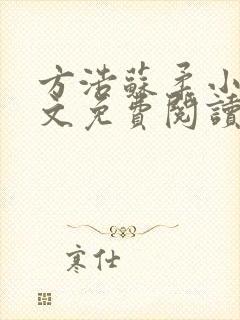 方浩蘇柔小
文免費閱讀
寒仕